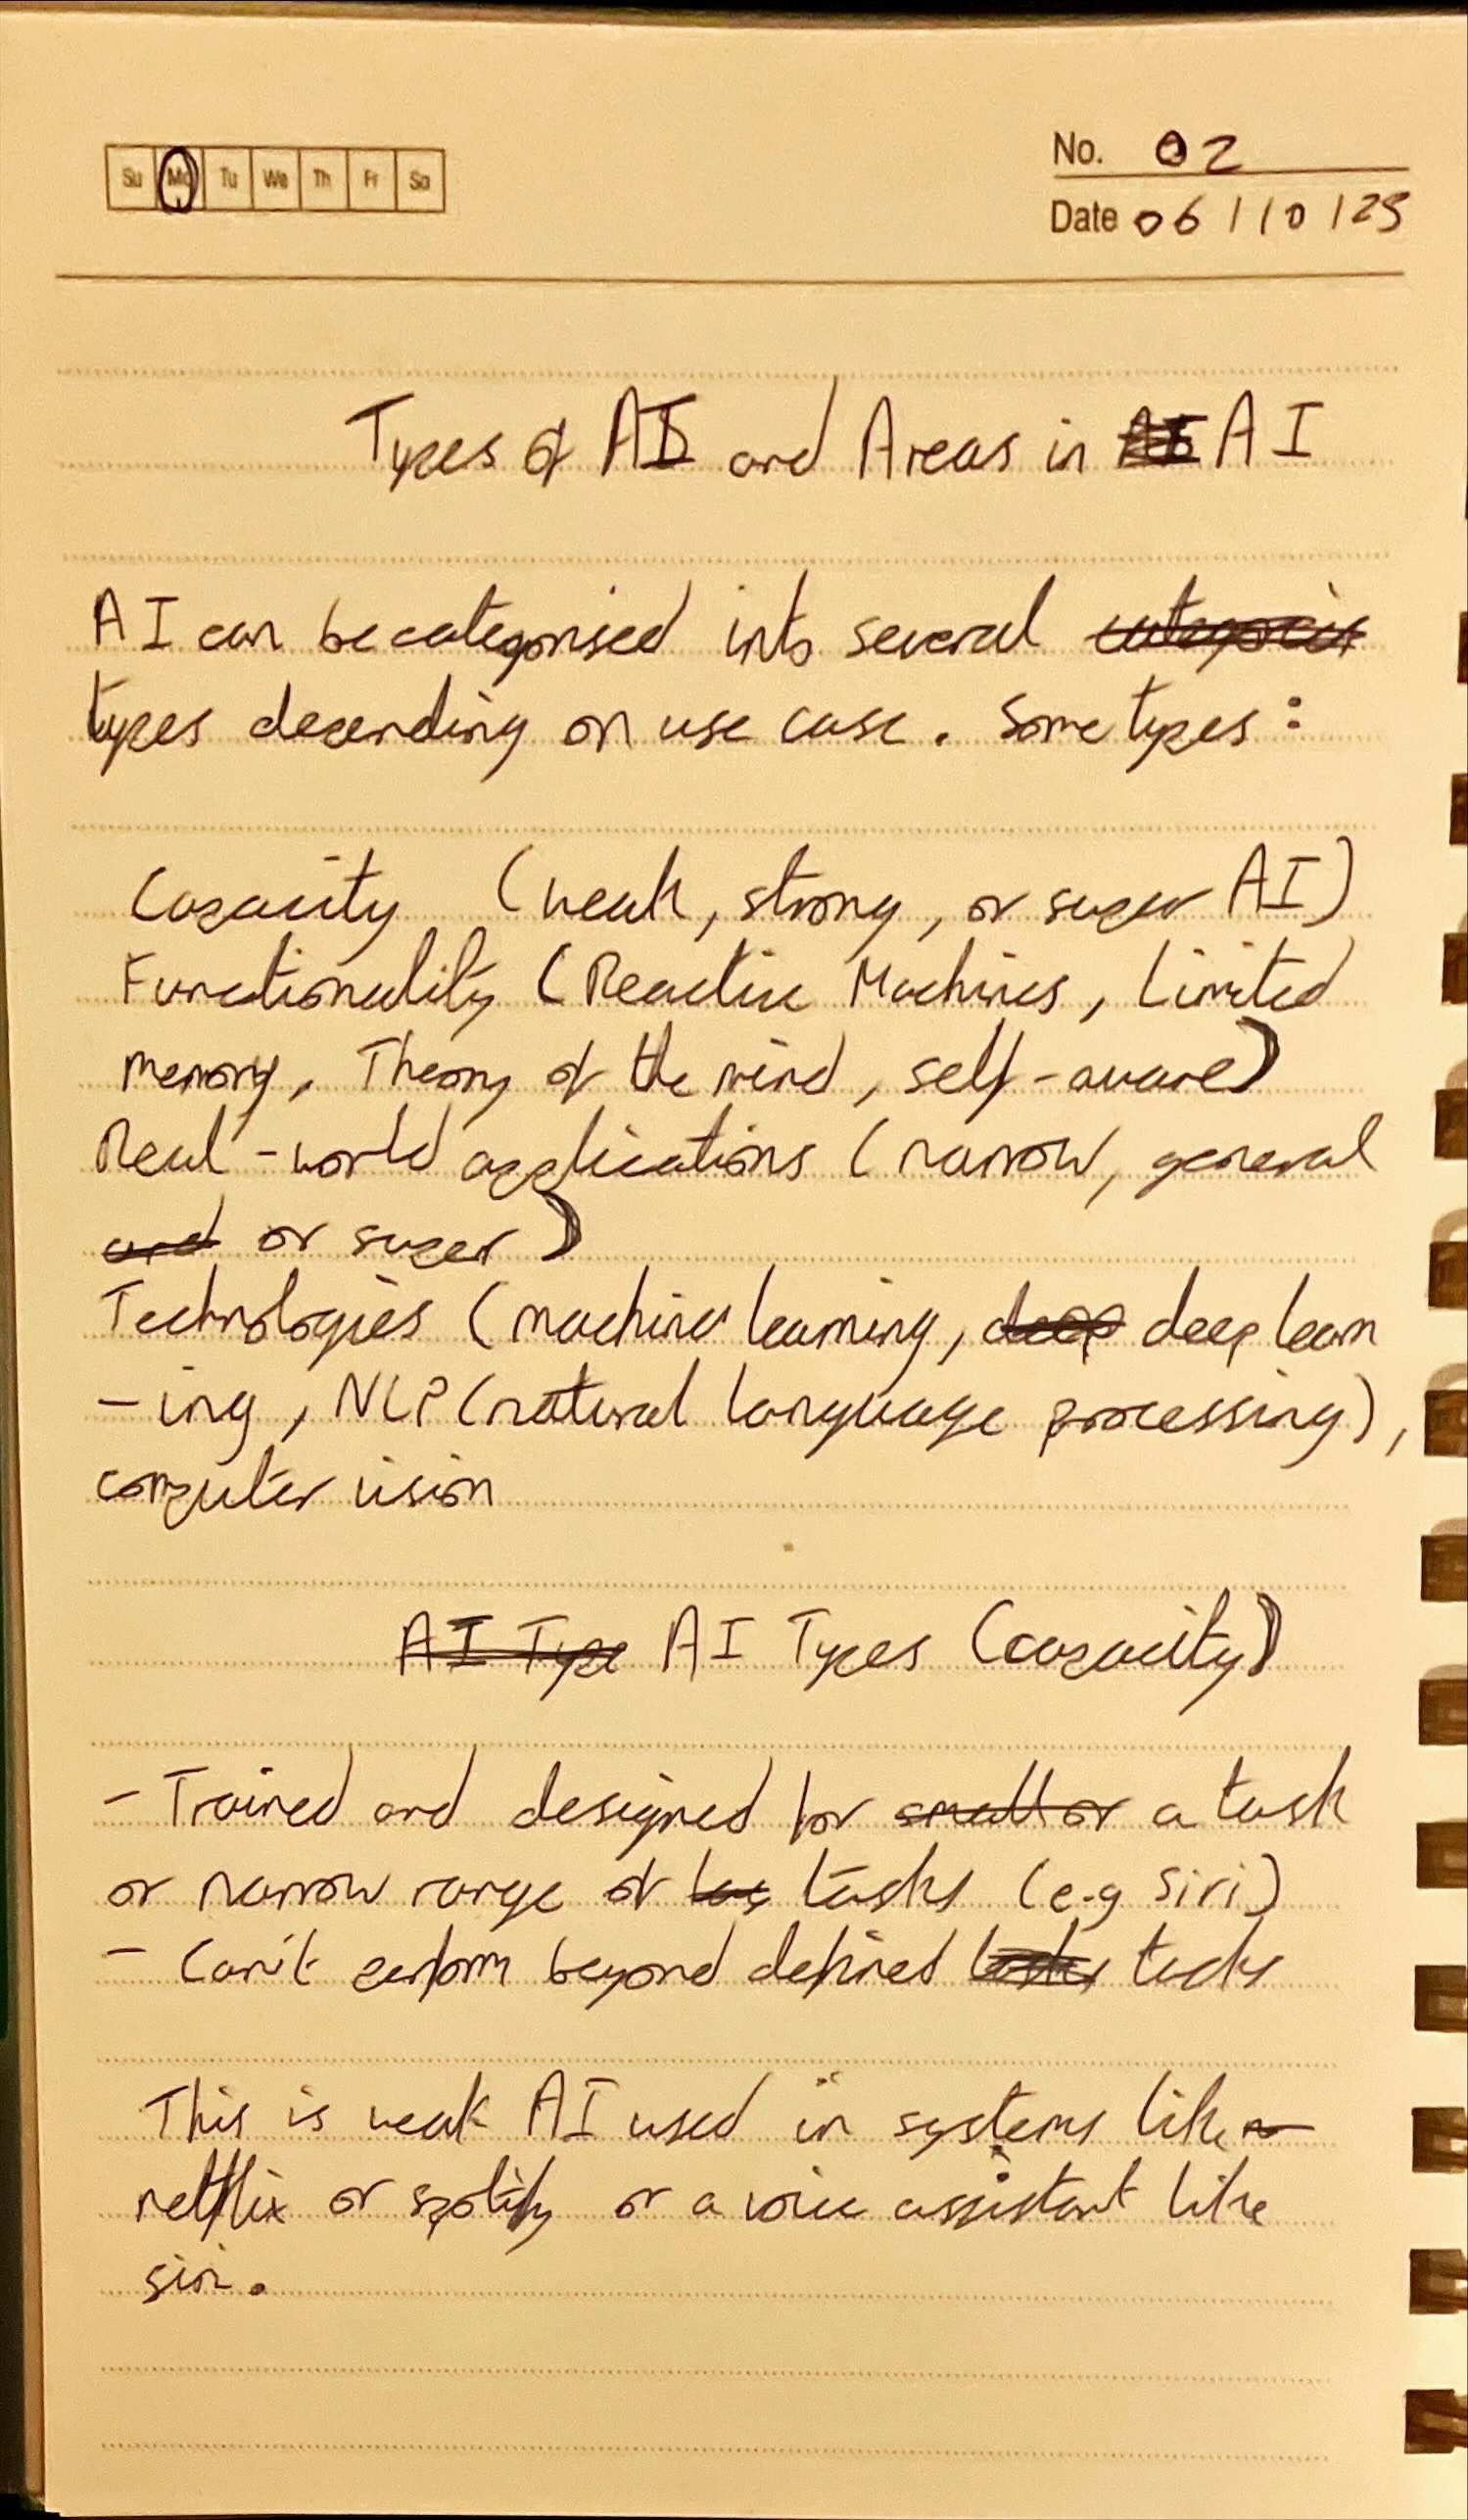 Su Mo Tu We Th Fr Sa
No. 02
Date 06/10/25
Types of AI and Areas in AI
AI can be categorised into several
types depending on use case. Some types:
Capacity (weak, strong, or super AI)
Functionality (Reactive Machines, Limited
memory, Theory of the mind, self-aware)
Real-world applications (narrow, general
and or super)
Technologies (machine learning, deep deep learn
-ing, NLP (natural language processing),
computer vision
AI Type AI Types (capacity)
- Trained and designed for small or a task
or narrow range of tasks (e.g Siri)
- Can't perform beyond defined tasks
This is weak AI used in systems like
netflix or spotify or a voice assistant like
siri.